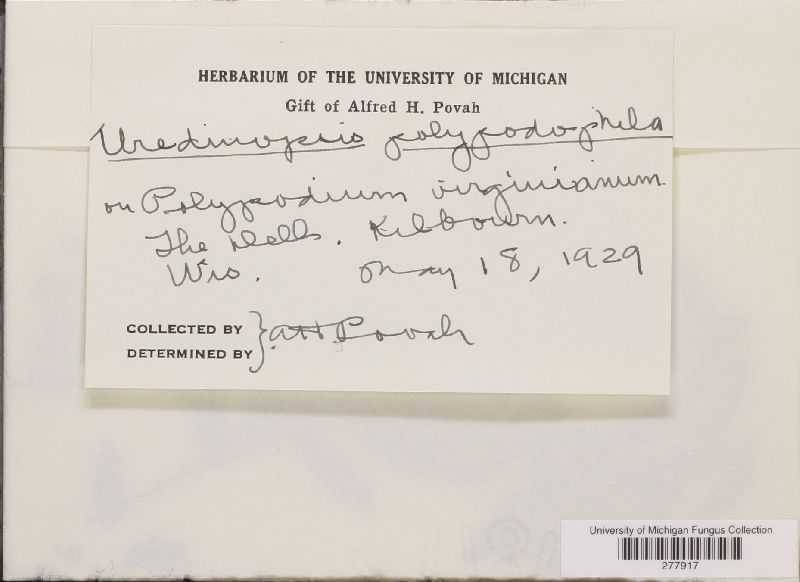 HERBARIUM OF THE UNIVERSITY OF MICHIGAN
Gift of Alfred H. Povah
Uredinopsis polypodophila
on Polypodium virginianum.
The Dells. Kilbourn.
Wis. May 18, 1929
COLLECTED BY
DETERMINED BY } A.H. Povah
University of Michigan Fungus Collection
277917